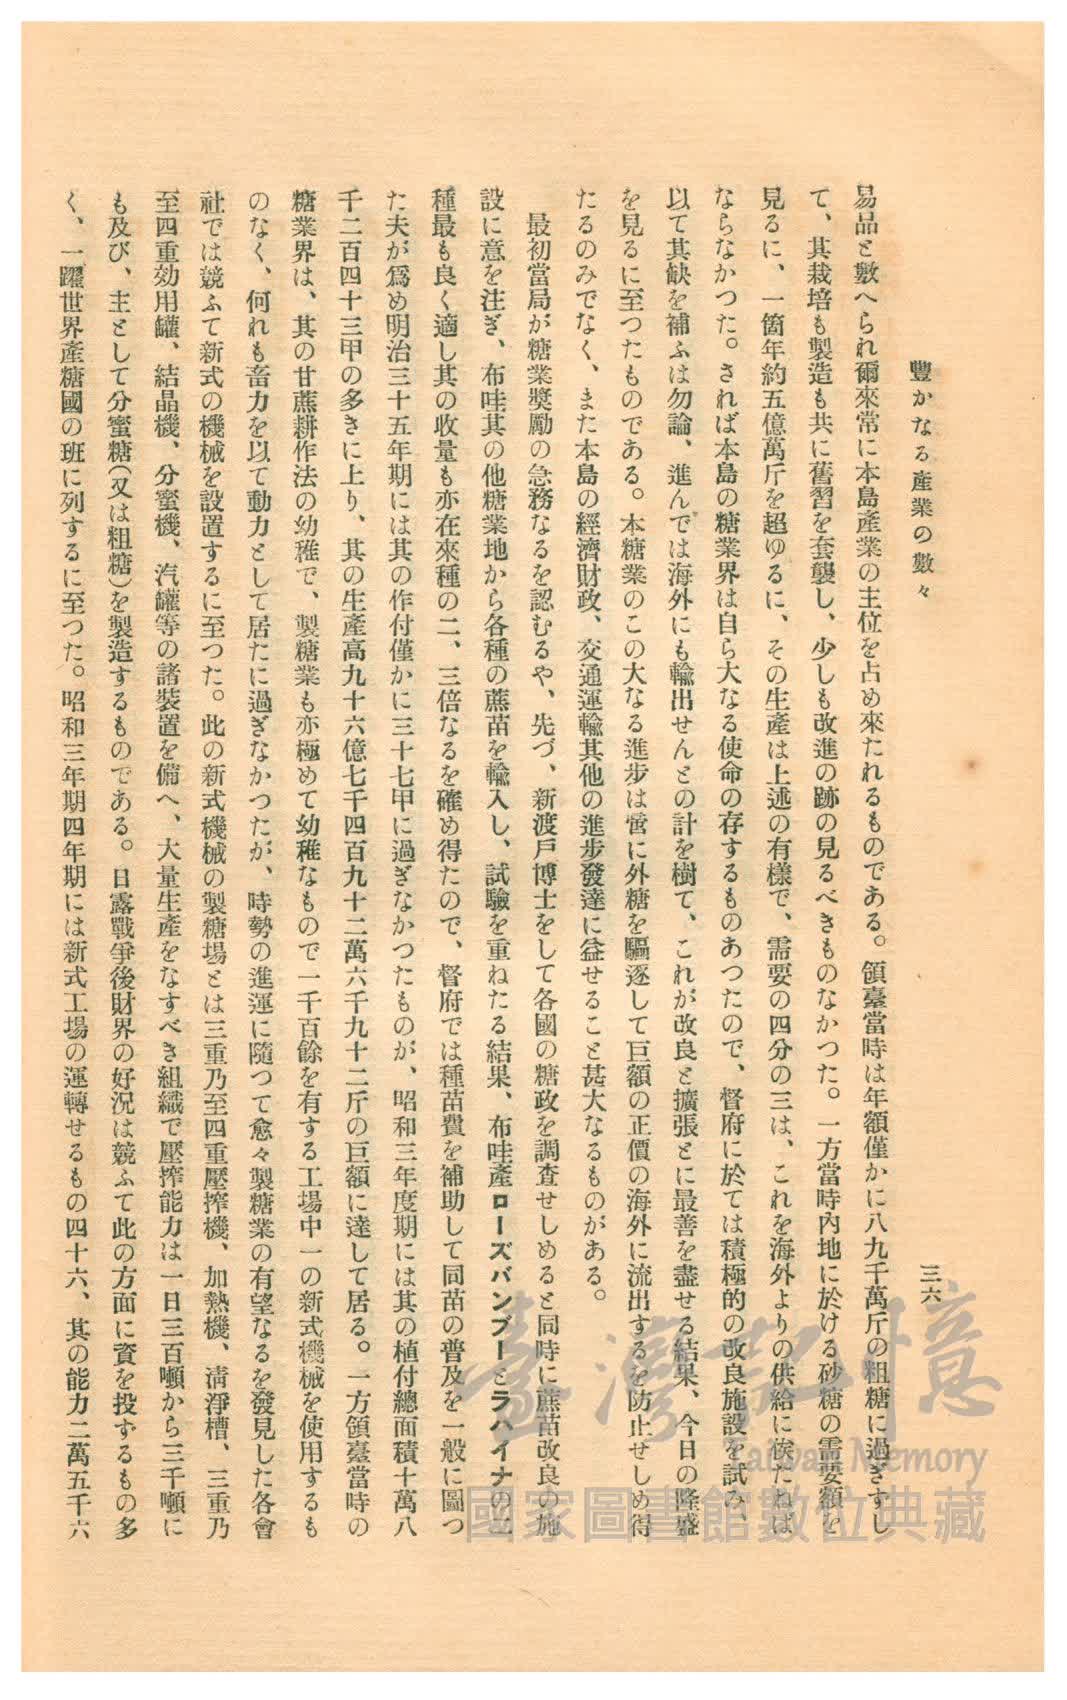 豐かなる產業の數々
三六
易品と數へられ爾來常に本島產業の主位を占め來たれるものである。領臺當時は年額僅かに八九千萬斤の粗糖に過ぎずし
て、其栽培も製造も共に舊習を套襲し、少しも改進の跡の見るべきものなかつた。一方當時內地に於ける砂糖の需要額を
見るに、一箇年約五億萬斤を超ゆるに、その生產は上述の有樣で、需要の四分の三は、これを海外よりの供給に俟たねば
ならなかつた。されば本島の糖業界は自ら大なる使命の存するものあつたので、督府に於ては積極的の改良施設を試み、
以て其缺を補ふは勿論、進んでは海外にも輸出せんとの計を樹て、これが改良と擴張とに最善を盡せる結果、今日の隆盛
を見るに至つたものである。本糖業のこの大なる進步は啻に外糖を驅逐して巨額の正價の海外に流出するを防止せしめ得
たるのみでなく、また本島の經濟財政、交通運輸其他の進步發達に益せること甚大なるものがある。
最初當局が糖業奬勵の急務なるを認むるや、先づ、新渡戶博士をして各國の糖政を調查せしめると同時に蔗苗改良の施
設に意を注ぎ、布哇其の他糖業地から各種の蔗苗を輸入し、試驗を重ねたる結果、布哇產ローズバンブーとラハイナの二
種最も良く適し其の收量も亦在來種の二、三倍なるを確め得たので、督府では種苗費を補助して同苗の普及を一般に圖つ
た夫が爲め明治三十五年期には其の作付僅かに三十七甲に過ぎなかつたものが、昭和三年度期には其の植付總面積十萬八
千二百四十三甲の多きに上り、其の生產高九十六億七千四百九十二萬六千九十二斤の巨額に達して居る。一方領臺當時の
糖業界は、其の甘蔗耕作法の幼稚で、製糖業も亦極めて幼稚なもので一千百餘を有する工場中一の新式機械を使用するも
のなく、何れも畜力を以て動力として居たに過ぎなかつたが、時勢の進運に隨つて愈々製糖業の有望なるを發見した各會
社では競ふて新式の機械を設置するに至つた。此の新式機械の製糖場とは三重乃至四重壓搾機、加熱機、淸淨槽、三重乃
至四重効用罐、結晶機、分蜜機、汽罐等の諸裝置を備へ、大量生產をなすべき組織で壓搾能力は一日三百噸から三千噸に
も及び、主として分蜜糖（又は粗糖）を製造するものである。日露戰爭後財界の好況は競ふて此の方面に資を投ずるもの多
く、一躍世界產糖國の班に列するに至つた。昭和三年期四年期には新式工場の運轉せるもの四十六、其の能力二萬五千六
臺灣記憶
Taiwan Memory
國家圖書館數位典藏